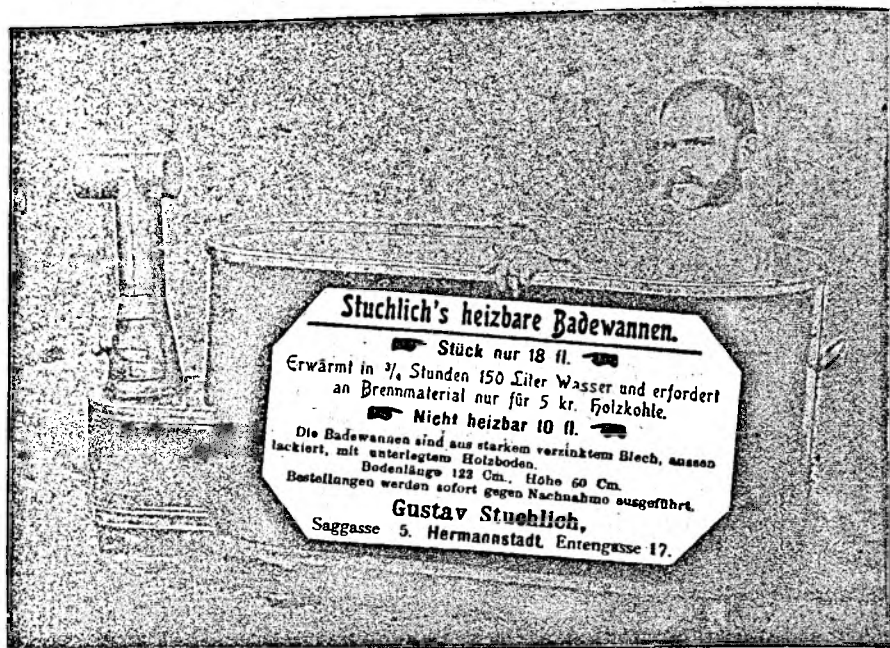 Stuchlich's heizbare Badewannen.
Stück nur 18 fl.
Erwärmt in ³/₄ Stunden 150 Liter Wasser und erfordert
an Brennmaterial nur für 5 kr. Holzkohle.
Nicht heizbar 10 fl.
Die Badewannen sind aus starkem verzinktem Blech, aussen
lackiert, mit unterlegtem Holzboden.
Bodenlänge 123 Cm., Höhe 60 Cm.
Bestellungen werden sofort gegen Nachnahme ausgeführt.
Gustav Stuchlich,
Saggasse 5. Hermannstadt. Entengasse 17.